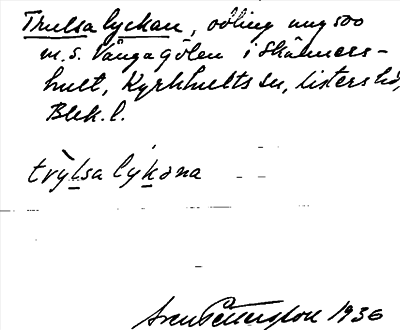 Trulsa lyckan, odling ung 500
m. S. Vånga Gölen i Skånners-
hult, Kyrkhults sn, Listers hd,
Blek. l.
trỳlsa lýkəna
Sven Pettersson 1936